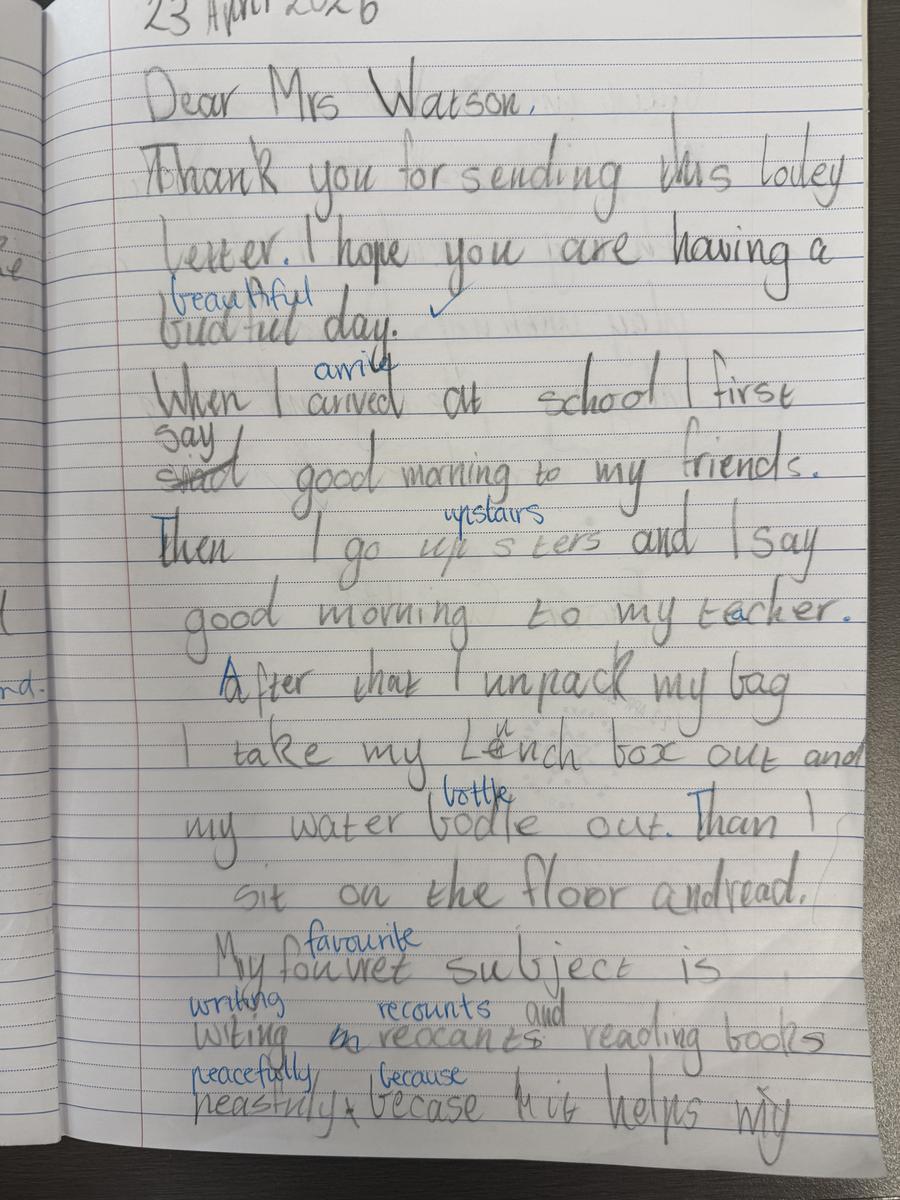 23 April 2026
Dear Mrs Watson,
Thank you for sending this lovley
letter. I hope you are having a
beautiful
budtful day. ✓
arrive
When I arived at school I first
say
said good morning to my friends.
upstairs
Then I go up sters and I say
good morning to my teacher.
After that I unpack my bag
I take my Lunch box out and
bottle
my water bodle out. Than I
sit on the floor andread.
favourite
My fouvret subject is
writing recounts and
witing reocants reading books
peacefully because
peasfuly becase it helps my
nd.